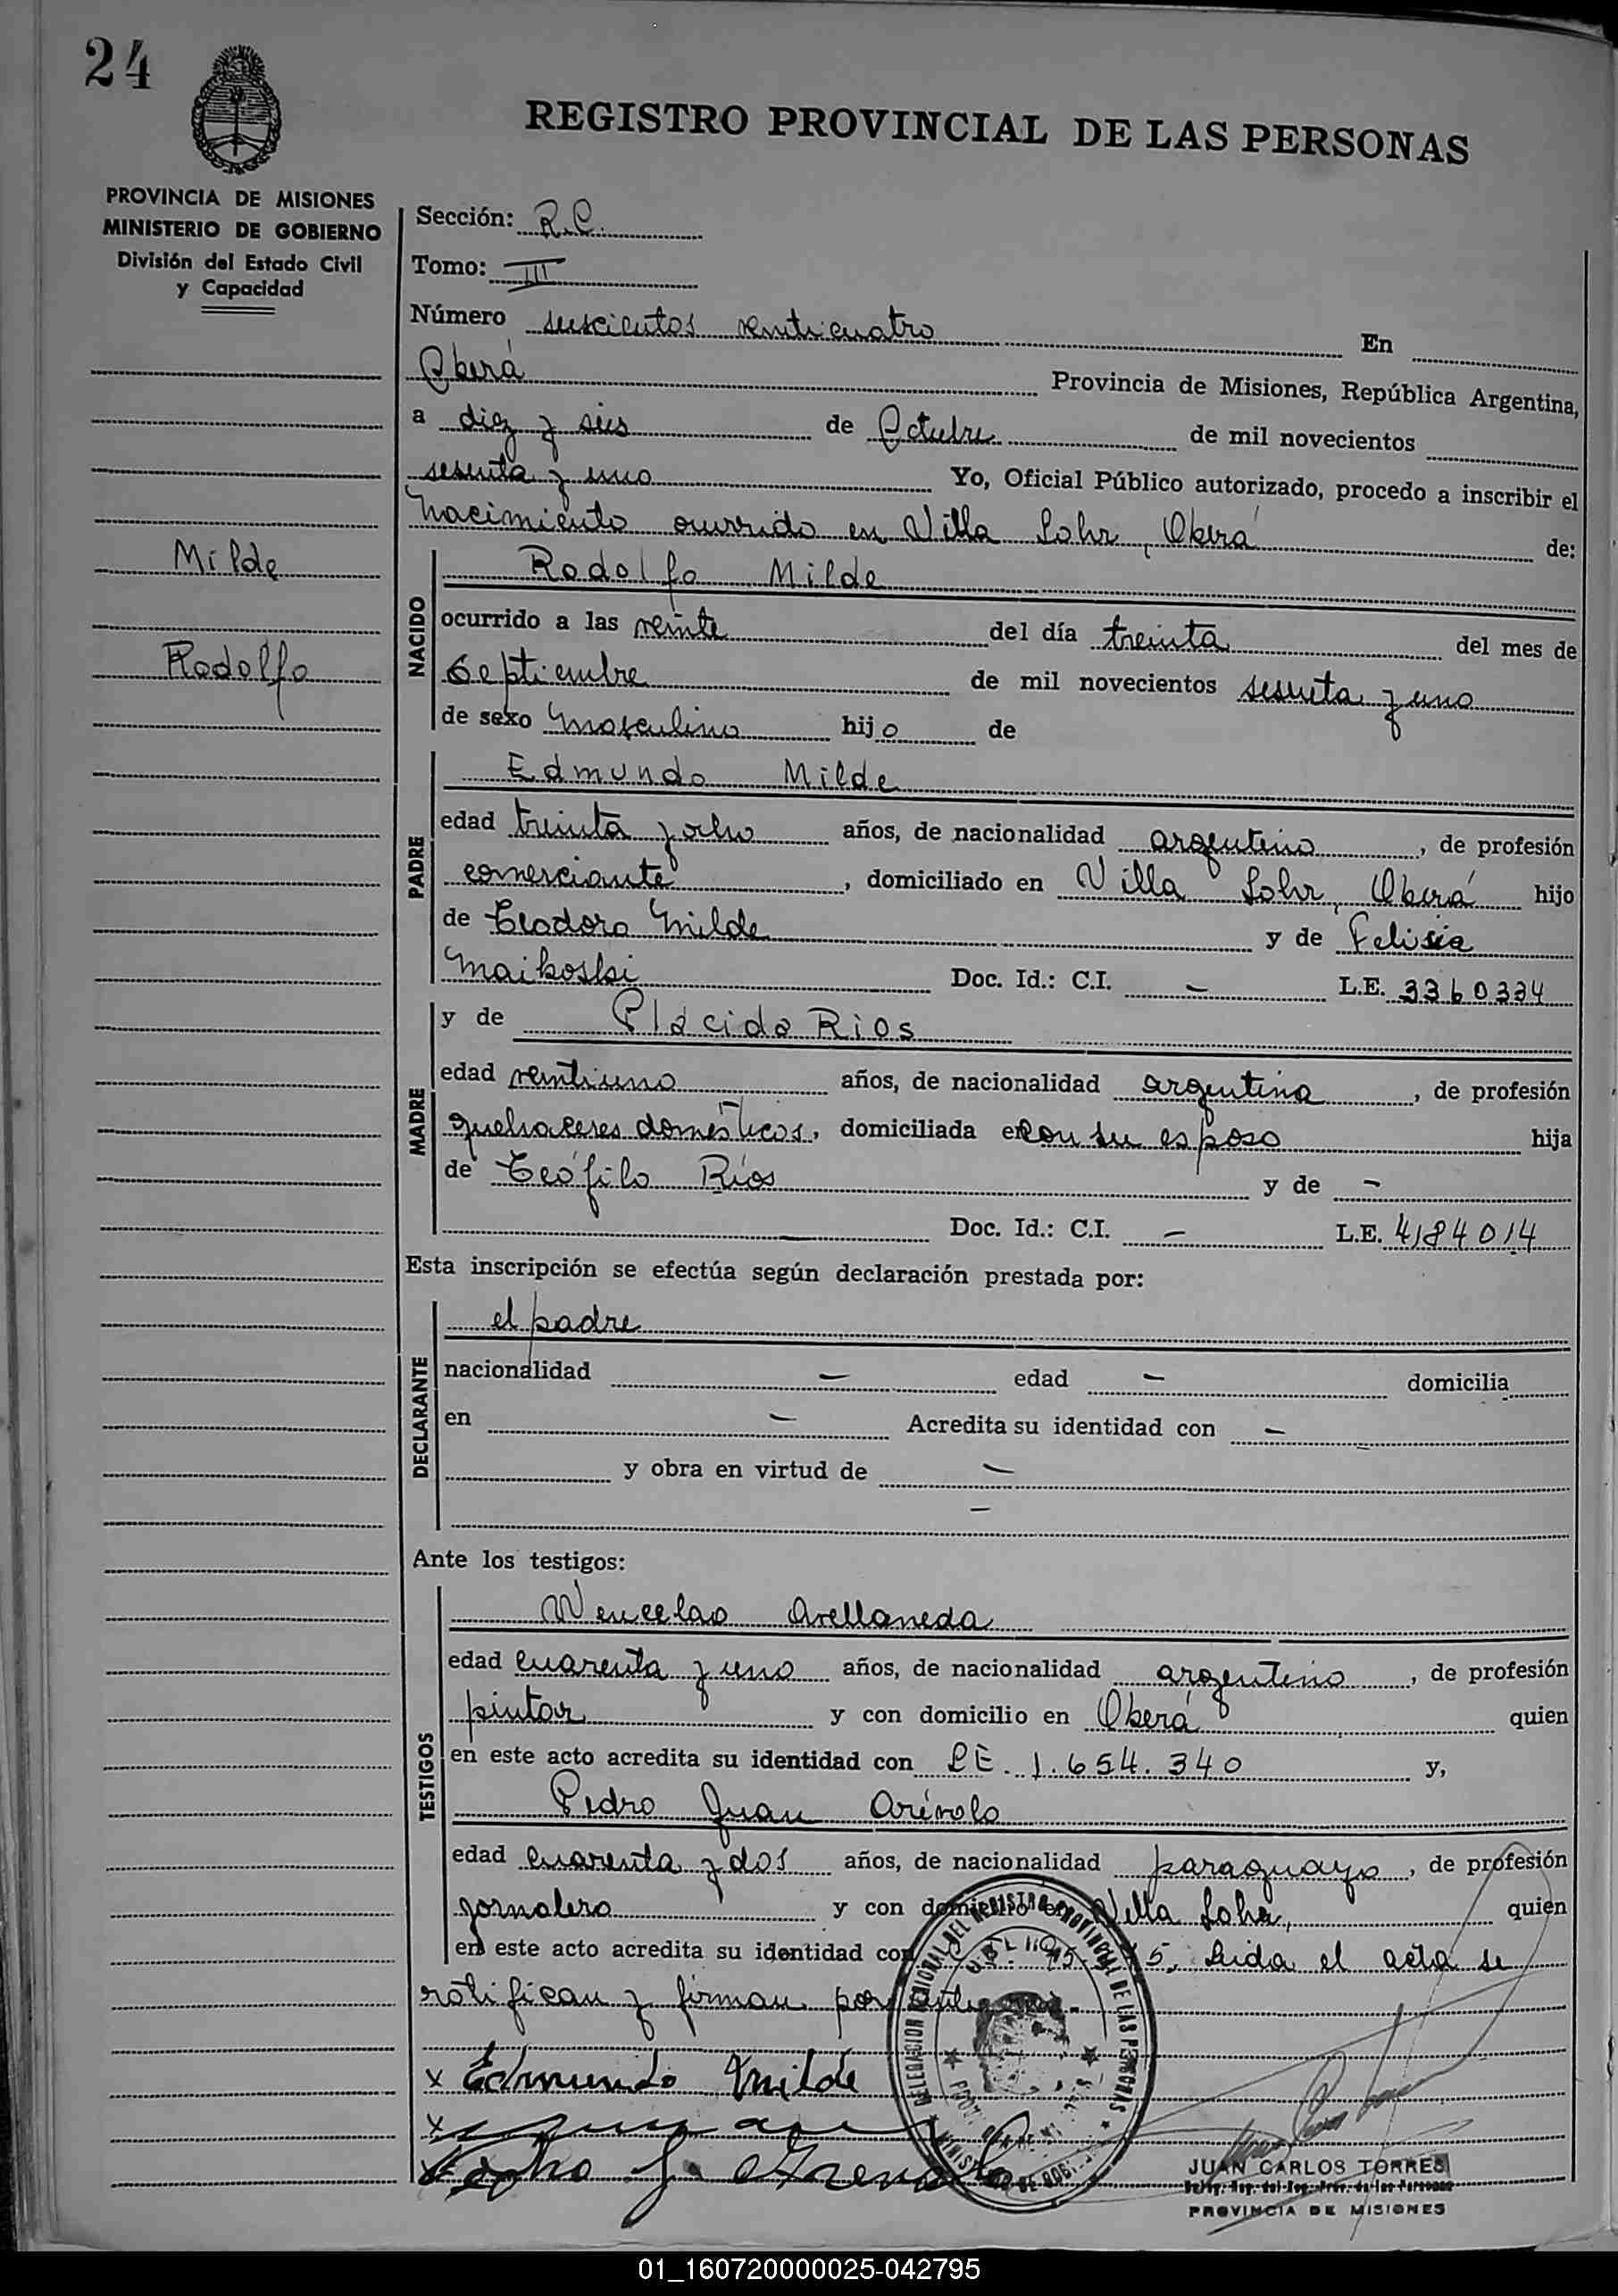 24
REGISTRO PROVINCIAL DE LAS PERSONAS
PROVINCIA DE MISIONES
MINISTERIO DE GOBIERNO
División del Estado Civil
y Capacidad
Milde
Rodolfo
Sección: R.C.
Tomo: III
Número seiscientos venticuatro En
Oberá Provincia de Misiones, República Argentina,
a diez y seis de Octubre de mil novecientos
sesenta y uno Yo, Oficial Público autorizado, procedo a inscribir el
Nacimiento ocurrido en Villa Lohr, Oberá de:
NACIDO
Rodolfo Milde
ocurrido a las veinte del día treinta del mes de
Septiembre de mil novecientos sesenta y uno
de sexo masculino hijo de
PADRE
Edmundo Milde
edad treinta y ocho años, de nacionalidad argentino, de profesión
comerciante, domiciliado en Villa Lohr, Oberá hijo
de Teodoro Milde y de Felisia
Maikoski Doc. Id.: C.I. - L.E. 3360334
MADRE
y de Plácida Rios
edad ventiuno años, de nacionalidad argentina, de profesión
quehaceres domésticos, domiciliada en con su esposo hija
de Teófilo Ríos y de -
- Doc. Id.: C.I. - L.E. 4184014
Esta inscripción se efectúa según declaración prestada por:
DECLARANTE
el padre
nacionalidad - edad - domicilia
en - Acredita su identidad con -
y obra en virtud de -
-
Ante los testigos:
TESTIGOS
Wencelao Avellaneda
edad cuarenta y uno años, de nacionalidad argentino, de profesión
pintor y con domicilio en Oberá quien
en este acto acredita su identidad con LE. 1.654.340 y,
Pedro Juan Arévolo
edad cuarenta y dos años, de nacionalidad paraguayo, de profesión
jornalero y con domicilio en Villa Lohr, quien
en este acto acredita su identidad con 5, Leida el acta se
ratifican y firman por ante
x Edmundo Milde
x
x
DELEGACION REGIONAL DEL REGISTRO PROVINCIAL DE LAS PERSONAS
JUAN CARLOS TORRES
PROVINCIA DE MISIONES
01_160720000025-042795